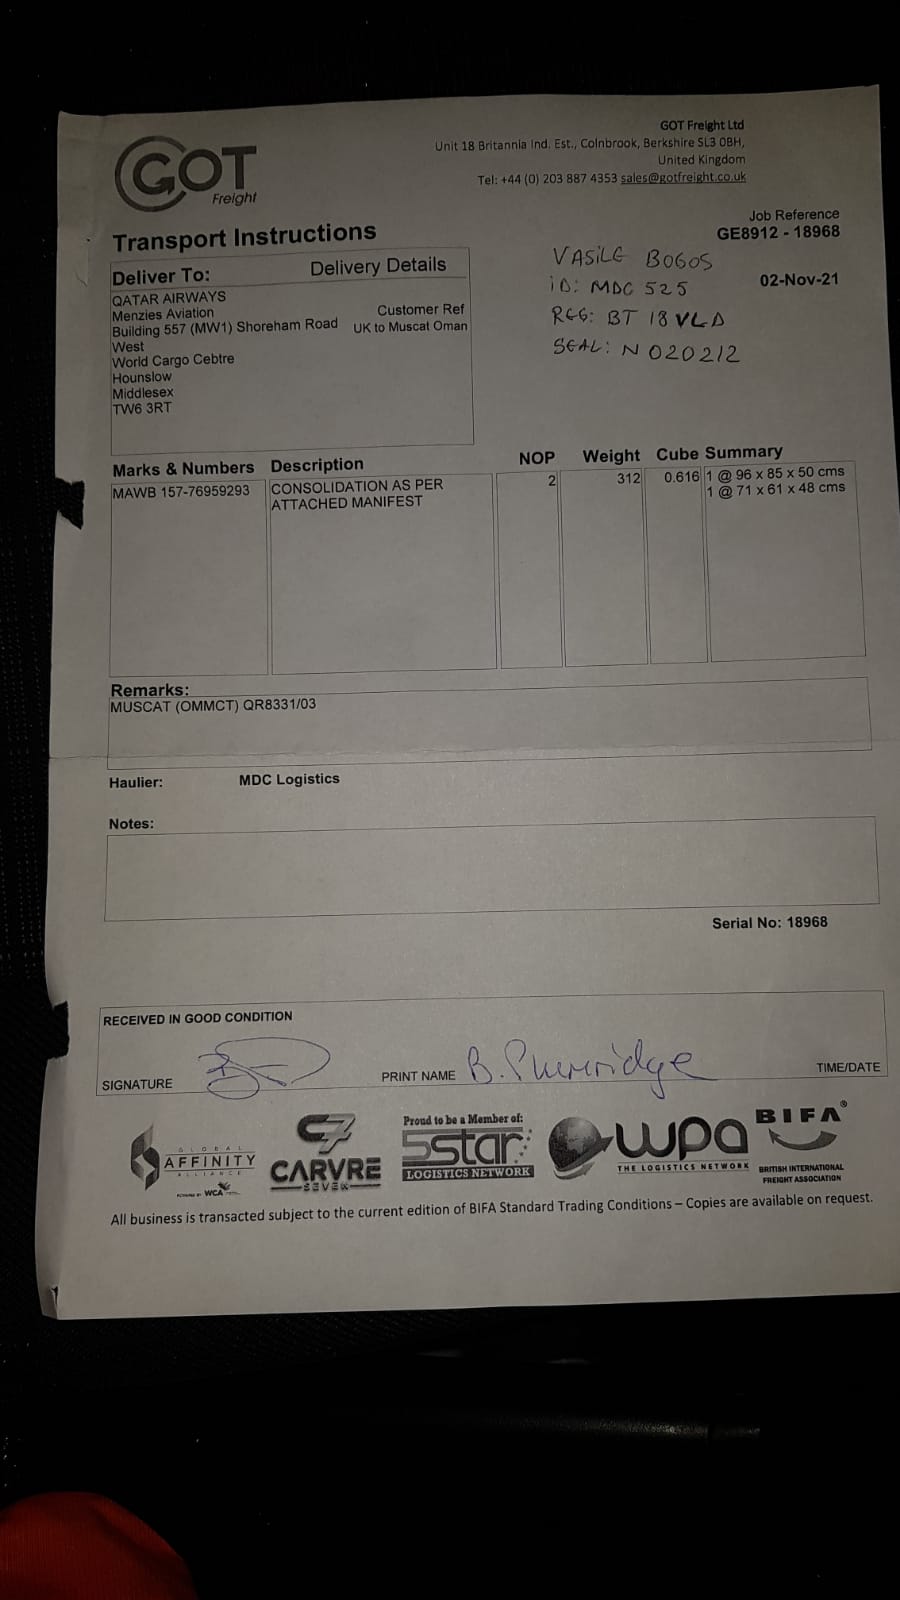 GOT
Freight
GOT Freight Ltd
Unit 18 Britannia Ind. Est., Colnbrook, Berkshire SL3 0BH,
United Kingdom
Tel: +44 (0) 203 887 4353 sales@gotfreight.co.uk
Job Reference
GE8912 - 18968
02-Nov-21
Transport Instructions
VASILE BOGOS
iD: MDC 525
REG: BT 18 VLD
SEAL: N 020212
Deliver To:
Delivery Details
QATAR AIRWAYS
Menzies Aviation
Building 557 (MW1) Shoreham Road
West
World Cargo Cebtre
Hounslow
Middlesex
TW6 3RT
Customer Ref
UK to Muscat Oman
Marks & Numbers Description NOP Weight Cube Summary
MAWB 157-76959293 CONSOLIDATION AS PER 2 312 0.616 1 @ 96 x 85 x 50 cms
ATTACHED MANIFEST 1 @ 71 x 61 x 48 cms
Remarks:
MUSCAT (OMMCT) QR8331/03
Haulier: MDC Logistics
Notes:
Serial No: 18968
RECEIVED IN GOOD CONDITION
SIGNATURE
PRINT NAME B.
TIME/DATE
GLOBAL
AFFINITY
ALLIANCE
POWERED BY WCA
C7
CARVRE
SEVEN
Proud to be a Member of:
5star
LOGISTICS NETWORK
wpa
THE LOGISTICS NETWORK
BIFA®
BRITISH INTERNATIONAL
FREIGHT ASSOCIATION
All business is transacted subject to the current edition of BIFA Standard Trading Conditions – Copies are available on request.